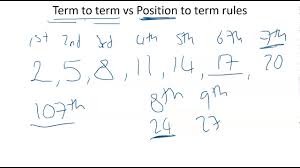 Term to term vs Position to term rules
1st 2nd 3rd 4th 5th 6th 7th
2, 5, 8, 11, 14, 17, 20
107th 8th 9th
24 27